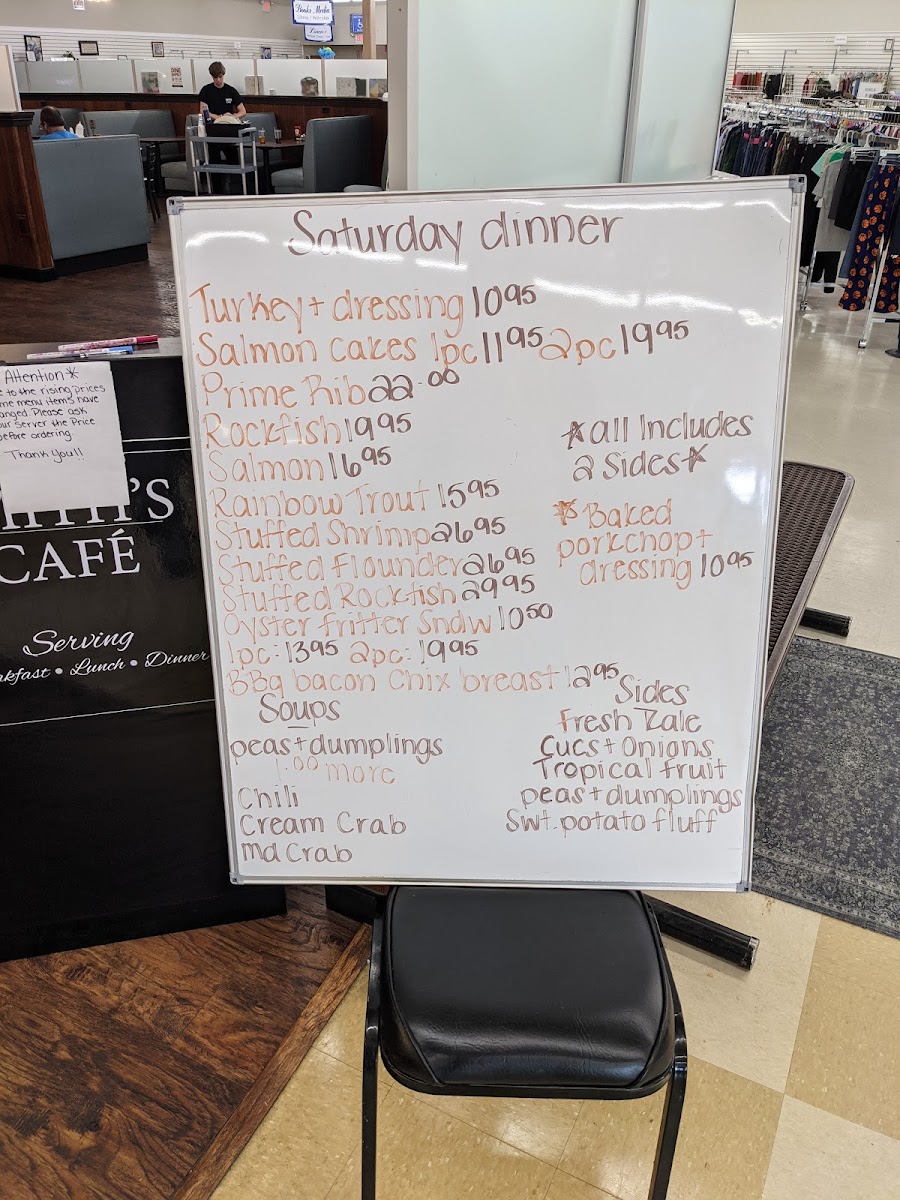 Saturday dinner
Turkey + dressing 10⁹⁵
Salmon cakes 1pc 11⁹⁵ 2pc 19⁹⁵
Prime Rib 22.⁰⁰
Rockfish 19⁹⁵
Salmon 16⁹⁵
Rainbow Trout 15⁹⁵
Stuffed Shrimp 26⁹⁵
Stuffed Flounder 26⁹⁵
Stuffed Rockfish 29⁹⁵
Oyster fritter Sndw 10⁵⁰
1pc: 13⁹⁵ 2pc: 19⁹⁵
BBq bacon Chix breast 12⁹⁵
*all Includes
2 Sides*
*Baked
porkchop +
dressing 10⁹⁵
Soups
peas + dumplings
1.⁰⁰ more
Chili
Cream Crab
Md Crab
Sides
Fresh Kale
Cucs + Onions
Tropical fruit
peas + dumplings
Swt. potato fluff
Attention*
e to the rising prices
me menu items have
anged. Please ask
our server the Price
efore ordering.
Thank You!!
'S
CAFÉ
Serving
akfast • Lunch • Dinner